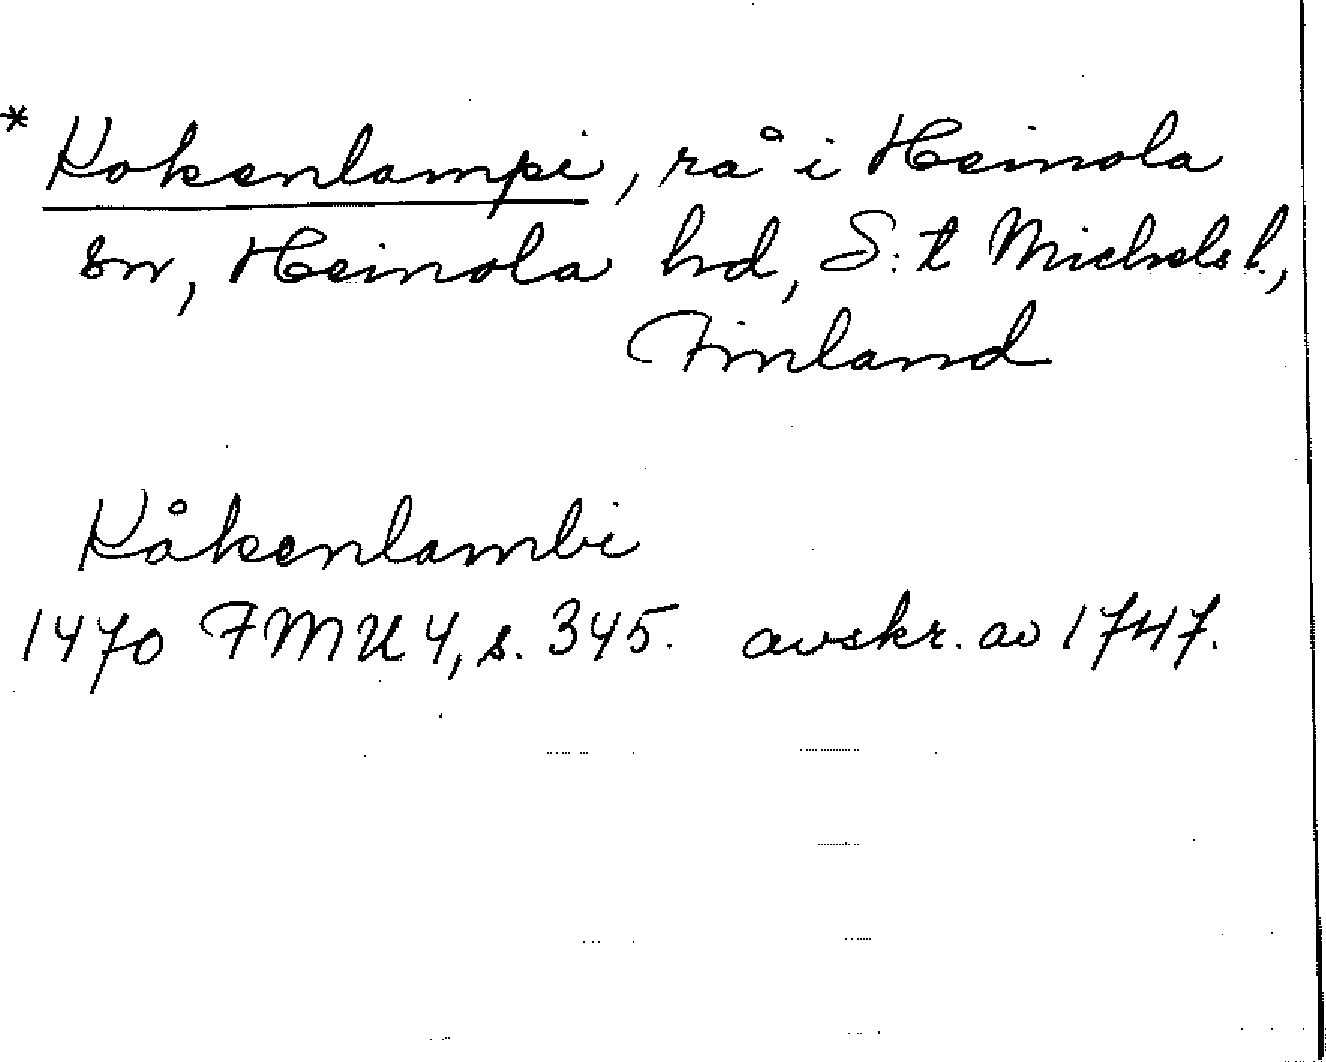 * Kokenlampi, rå i Heinola
sn, Heinola hd, S:t Michels l.,
Finland
Kåkenlambi
1470 FMU 4, s. 345. avskr. av 1747.